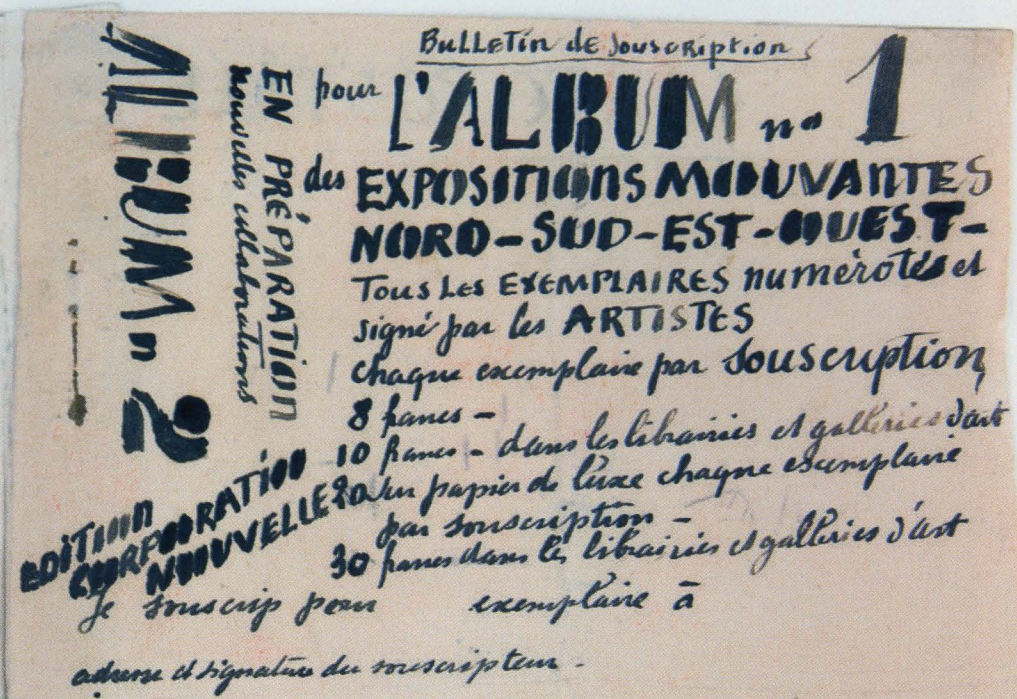 Bulletin de Souscription
pour L'ALBUM no 1
des EXPOSITIONS MOUVANTES
NORD-SUD-EST-OUEST-
Tous Les EXEMPLAIRES numérotés et
signé par les ARTISTES
chaque exemplaire par Souscription,
8 francs -
10 francs - dans les librairies et galleries d'art
20 sur papier de luxe chaque exemplaire
par souscription -
30 francs dans les librairies et galleries d'art
je souscrip pour exemplaire à
adresse et signature du souscripteur -
EN PRÉPARATION
nouvelles collaborations
ALBUM n 2
EDITION
CORPORATION
NOUVELLE